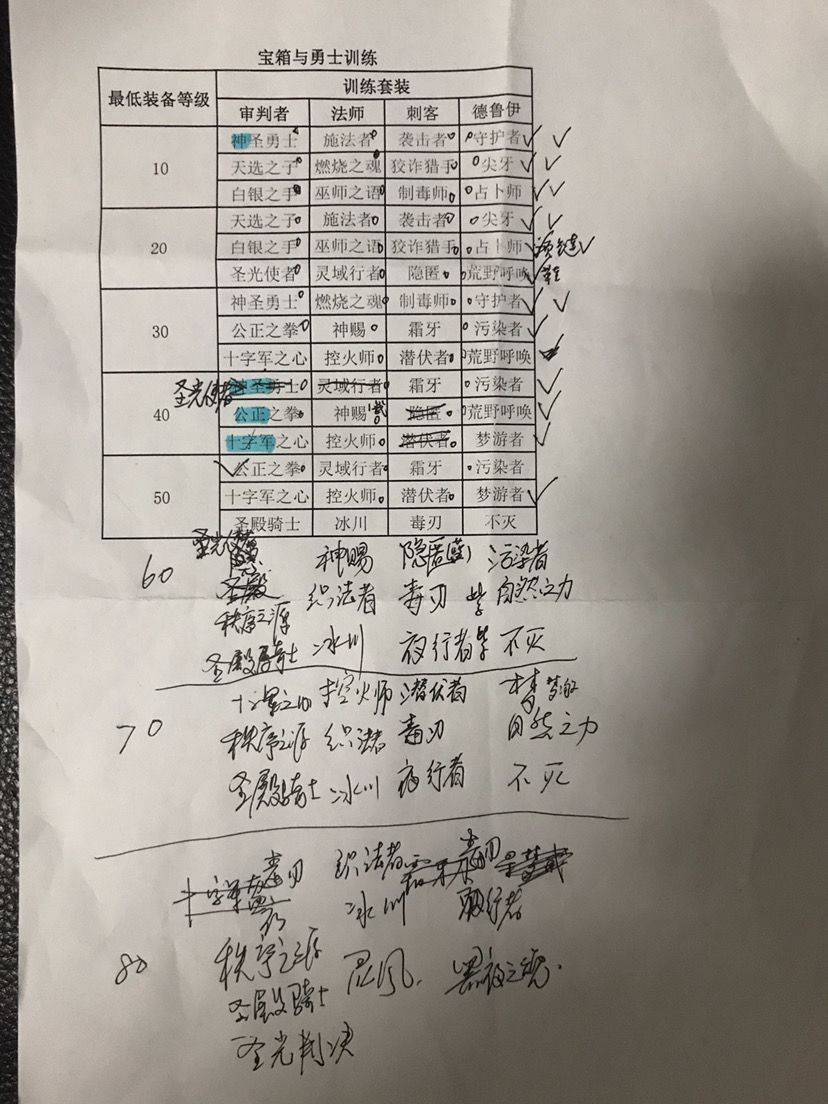 宝箱与勇士训练
最低装备等级 训练套装
审判者 法师 刺客 德鲁伊
10
神圣勇士 施法者 袭击者 守护者
天选之子 燃烧之魂 狡诈猎手 尖牙
白银之手 巫师之语 制毒师 占卜师
20
天选之子 施法者 袭击者 尖牙
白银之手 巫师之语 狡诈猎手 占卜师
圣光使者 灵域行者 隐匿 荒野呼唤
30
神圣勇士 燃烧之魂 制毒师 守护者
公正之拳 神赐 霜牙 污染者
十字军之心 控火师 潜伏者 荒野呼唤
40
圣光使者 神圣勇士 灵域行者 霜牙 污染者
公正之拳 神赐 隐匿 荒野呼唤
十字军之心 控火师 潜伏者 梦游者
50
公正之拳 灵域行者 霜牙 污染者
十字军之心 控火师 潜伏者 梦游者
圣殿骑士 冰川 毒刃 不灭
60
神赐 隐匿(蓝) 污染者
圣殿 织法者 毒刃 紫 自然之力
秩序之源
圣殿骑士 冰川 夜行者 紫 不灭
70
控火师 潜伏者
秩序之源 织法者 毒刃 自然之力
圣殿骑士 冰川 夜行者 不灭
80
毒刃 织法者 毒刃
冰川 夜行者
秩序之源
圣殿骑士
圣光判决